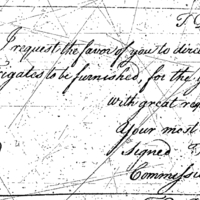 I request the favor of you to dire
rigates to be furnished, for the
with great re
Your most
Signed
Commissi